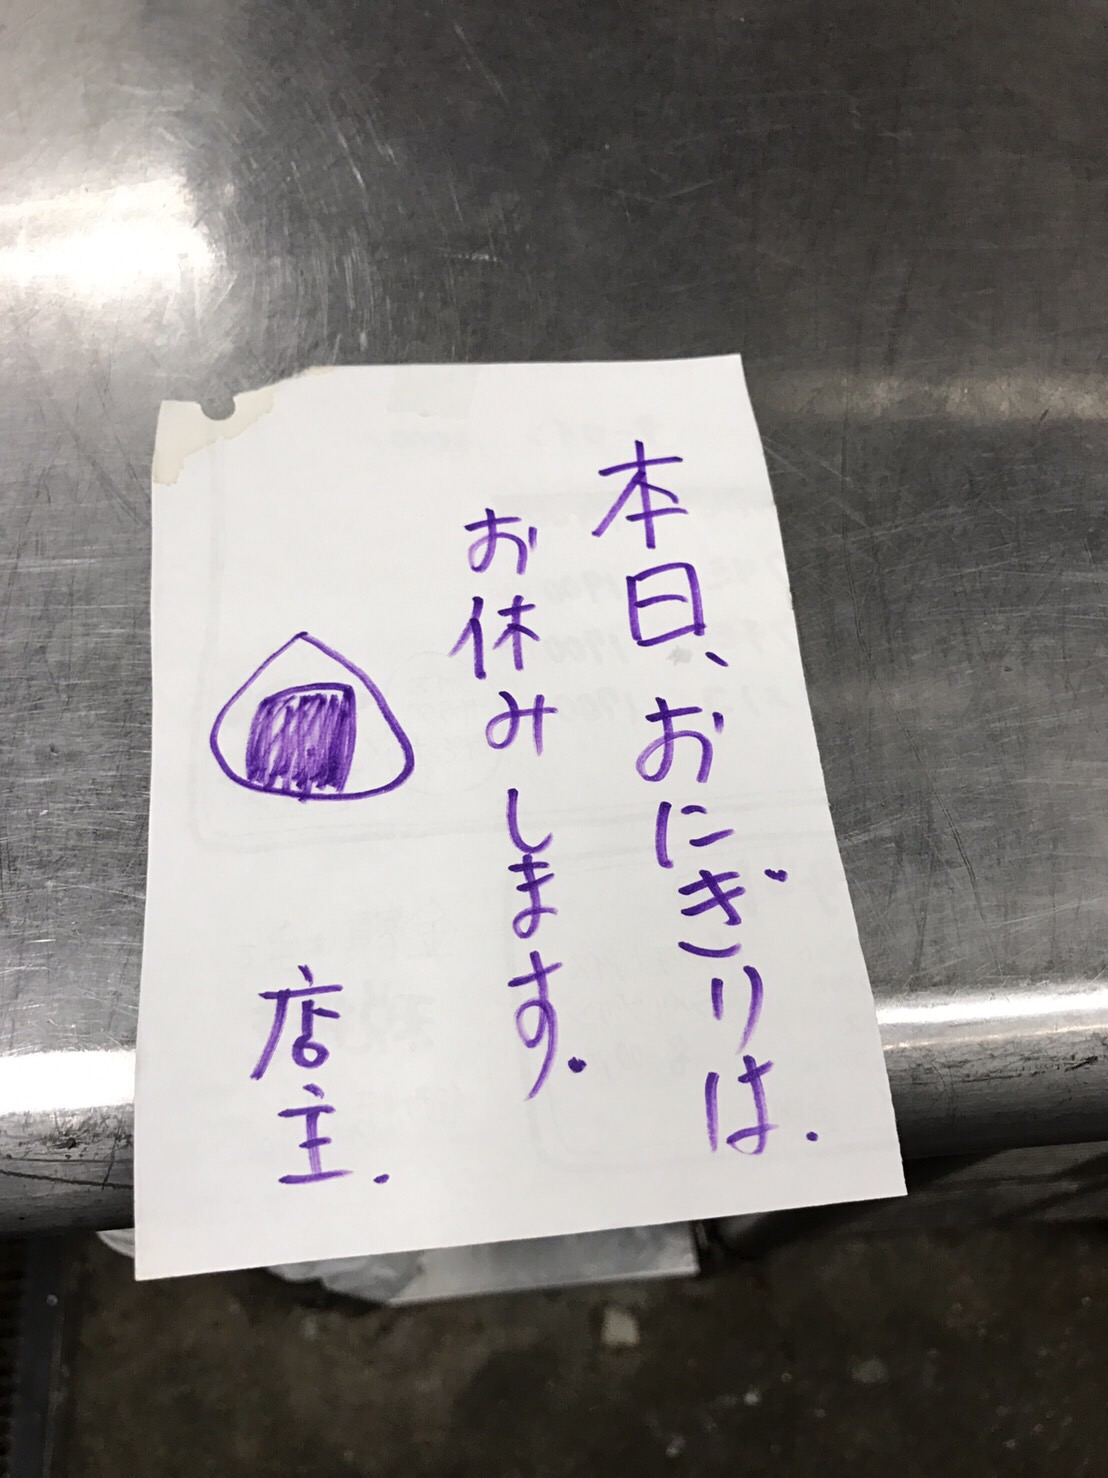 本日、おにぎりは.
お休みします.
店主.